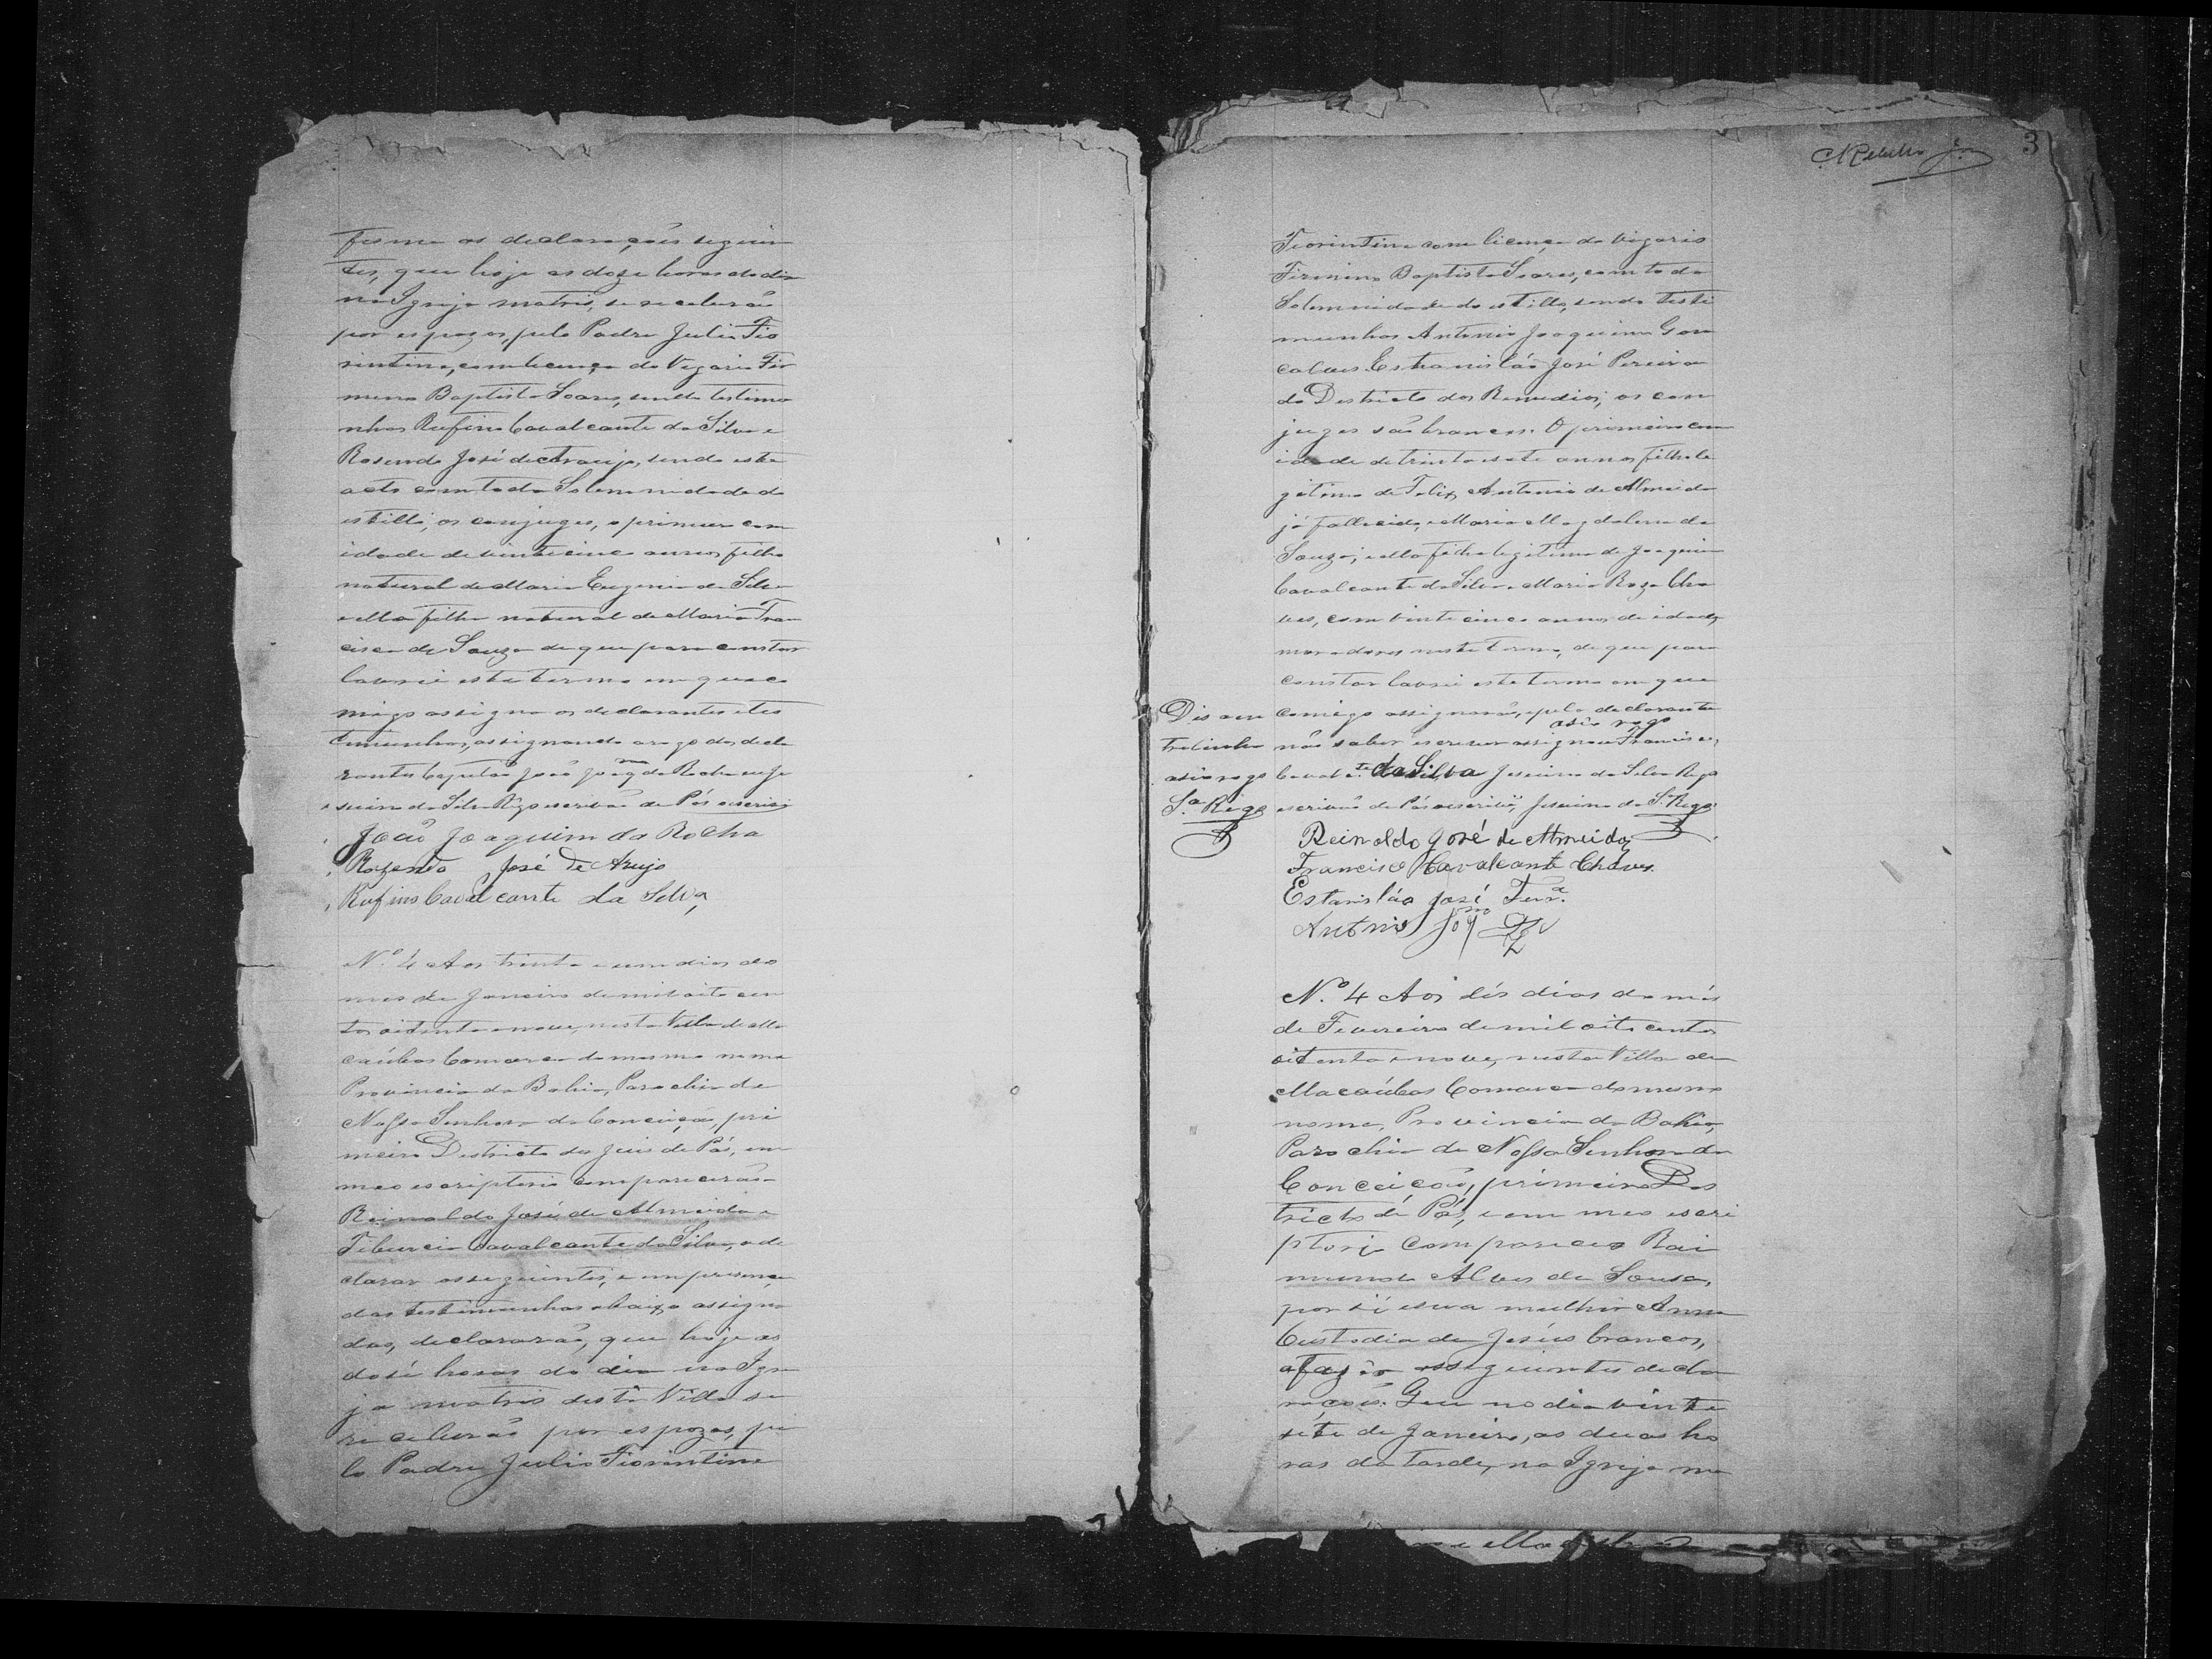 fesma as declarações seguin
tes, que hoje as doze horas do dia
na Igreja matris, se receberão
por espozos, pelo Padre Julio Fio
rintino, com licença do Vigario Fir
mino Baptista Soares, sendo testimo
nhas Rufino Cavalcante da Silva e
Rosendo José de Araujo, sendo este
acto com toda Solemnidade do
estillo; os conjuges, o primeiro com
idade de vinte cinco annos, filho
natural de Maria Eugenia da Silva
e ella filha natural de Maria Fran
cisca de Souza de que para constar
lavrei este termo em que co
migo assigna os declarantes e tes
timunhas, assignando a rogo dos decla
rantes Capitão João Joaqm da Rocha eu Je
suino da Silva Rego escrivão de Pás o escrivi
João Joaquim da Rocha
Rozendo José de Araujo
Rufino Cavalcante da Silva
N.º 4 Aos trinta e um dias do
mes de Janeiro de mil oito cen
tos oitenta e nove, nesta Villa de Ma
caúbas Comarca do mesmo nome
Provincia da Bahia, Parochia de
Nossa Senhora da Conceição, pri
meiro Districto do Juis de Pás, em
meo escriptorio comparecerão
Reinaldo José de Almeida e
Tiburcia Cavalcante da Silva, a de
clarar as seguintes, e em presença
das testimunhas abaixo assigna
das, declararão, que hoje as
dose horas do dia na Igre
ja matris desta Villa se
receberão por espozos, pe
lo Padre Julio Fiorintino
3
Fiorintino com licença do Vigario
Firmino Baptista Soares, com toda
Solemnidade do estillo, sendo testi
munhas Antonio Joaquim Gon
calves Estranisláo José Pereira
do Districto dos Remedios; os con
juges são brancos. O primeiro com
idade de trinta e sete annos, filho le
gitimo de Felix Antonio de Almeida
já fallecido, e Maria Magdalena de
Souza; e ella filha legitima de Joaquim
Cavalcante da Silva e Maria Roza Cha
ves, com vinte cinco annos de idade,
moradores neste termo, de que para
constar lavrei este termo em que
comigo assignarão, e pela declarante
asio rogo
não saber escrever assignou Francisco
Cavalcte. da Silva Jesuino da Silva Rego
escrivão de Pás o escrivi, Jesuino da Sª Rego
Dis a en
trelinha
asio rogo
Sª Rego
Reinaldo José de Almeida
Francisco Cavalcante Chaves.
Estanisláo José Ferrª.
Antonio Joqm
N.º 4 Aos dés dias do més
de Fevereiro de mil oito centos
oitenta e nove, nesta Villa de
Macaúbas Comarca do mesmo
nome, Provincia da Bahia,
Parochia de Nossa Senhora da
Conceicão, primeiro Des
tricto de Pás, e em meo escri
ptorio compareceo Rai
mundo Alves de Sousa,
por si e sua mulher Anna
Custodia de Jesús brancos,
a fazer as seguintes decla
racões. Que no dia vinte
séte de Janeiro, as duas ho
ras da tarde, na Igreja ma